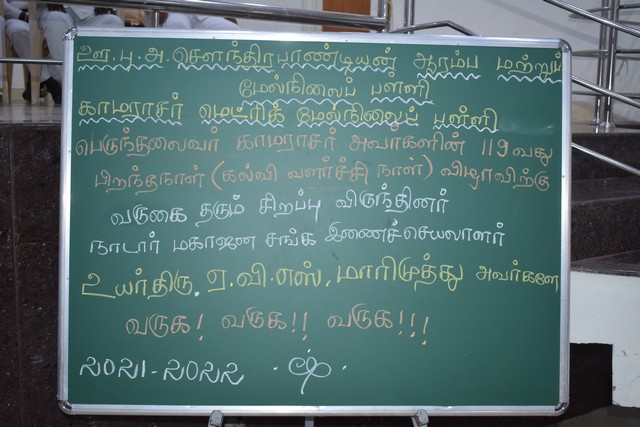 ஊ.பு.அ.சௌந்திரபாண்டியன் ஆரம்ப மற்றும்
மேல்நிலைப் பள்ளி
காமராசர் மெட்ரிக் மேல்நிலைப் பள்ளி
பெருந்தலைவர் காமராசர் அவர்களின் 119வது
பிறந்தநாள் (கல்வி வளர்ச்சி நாள்) விழாவிற்கு
வருகை தரும் சிறப்பு விருந்தினர்
நாடார் மகாஜன சங்க இணைச்செயலாளர்
உயர்திரு. ஏ.வி.எஸ். மாரிமுத்து அவர்களே
வருக! வருக!! வருக!!!
2021-2022